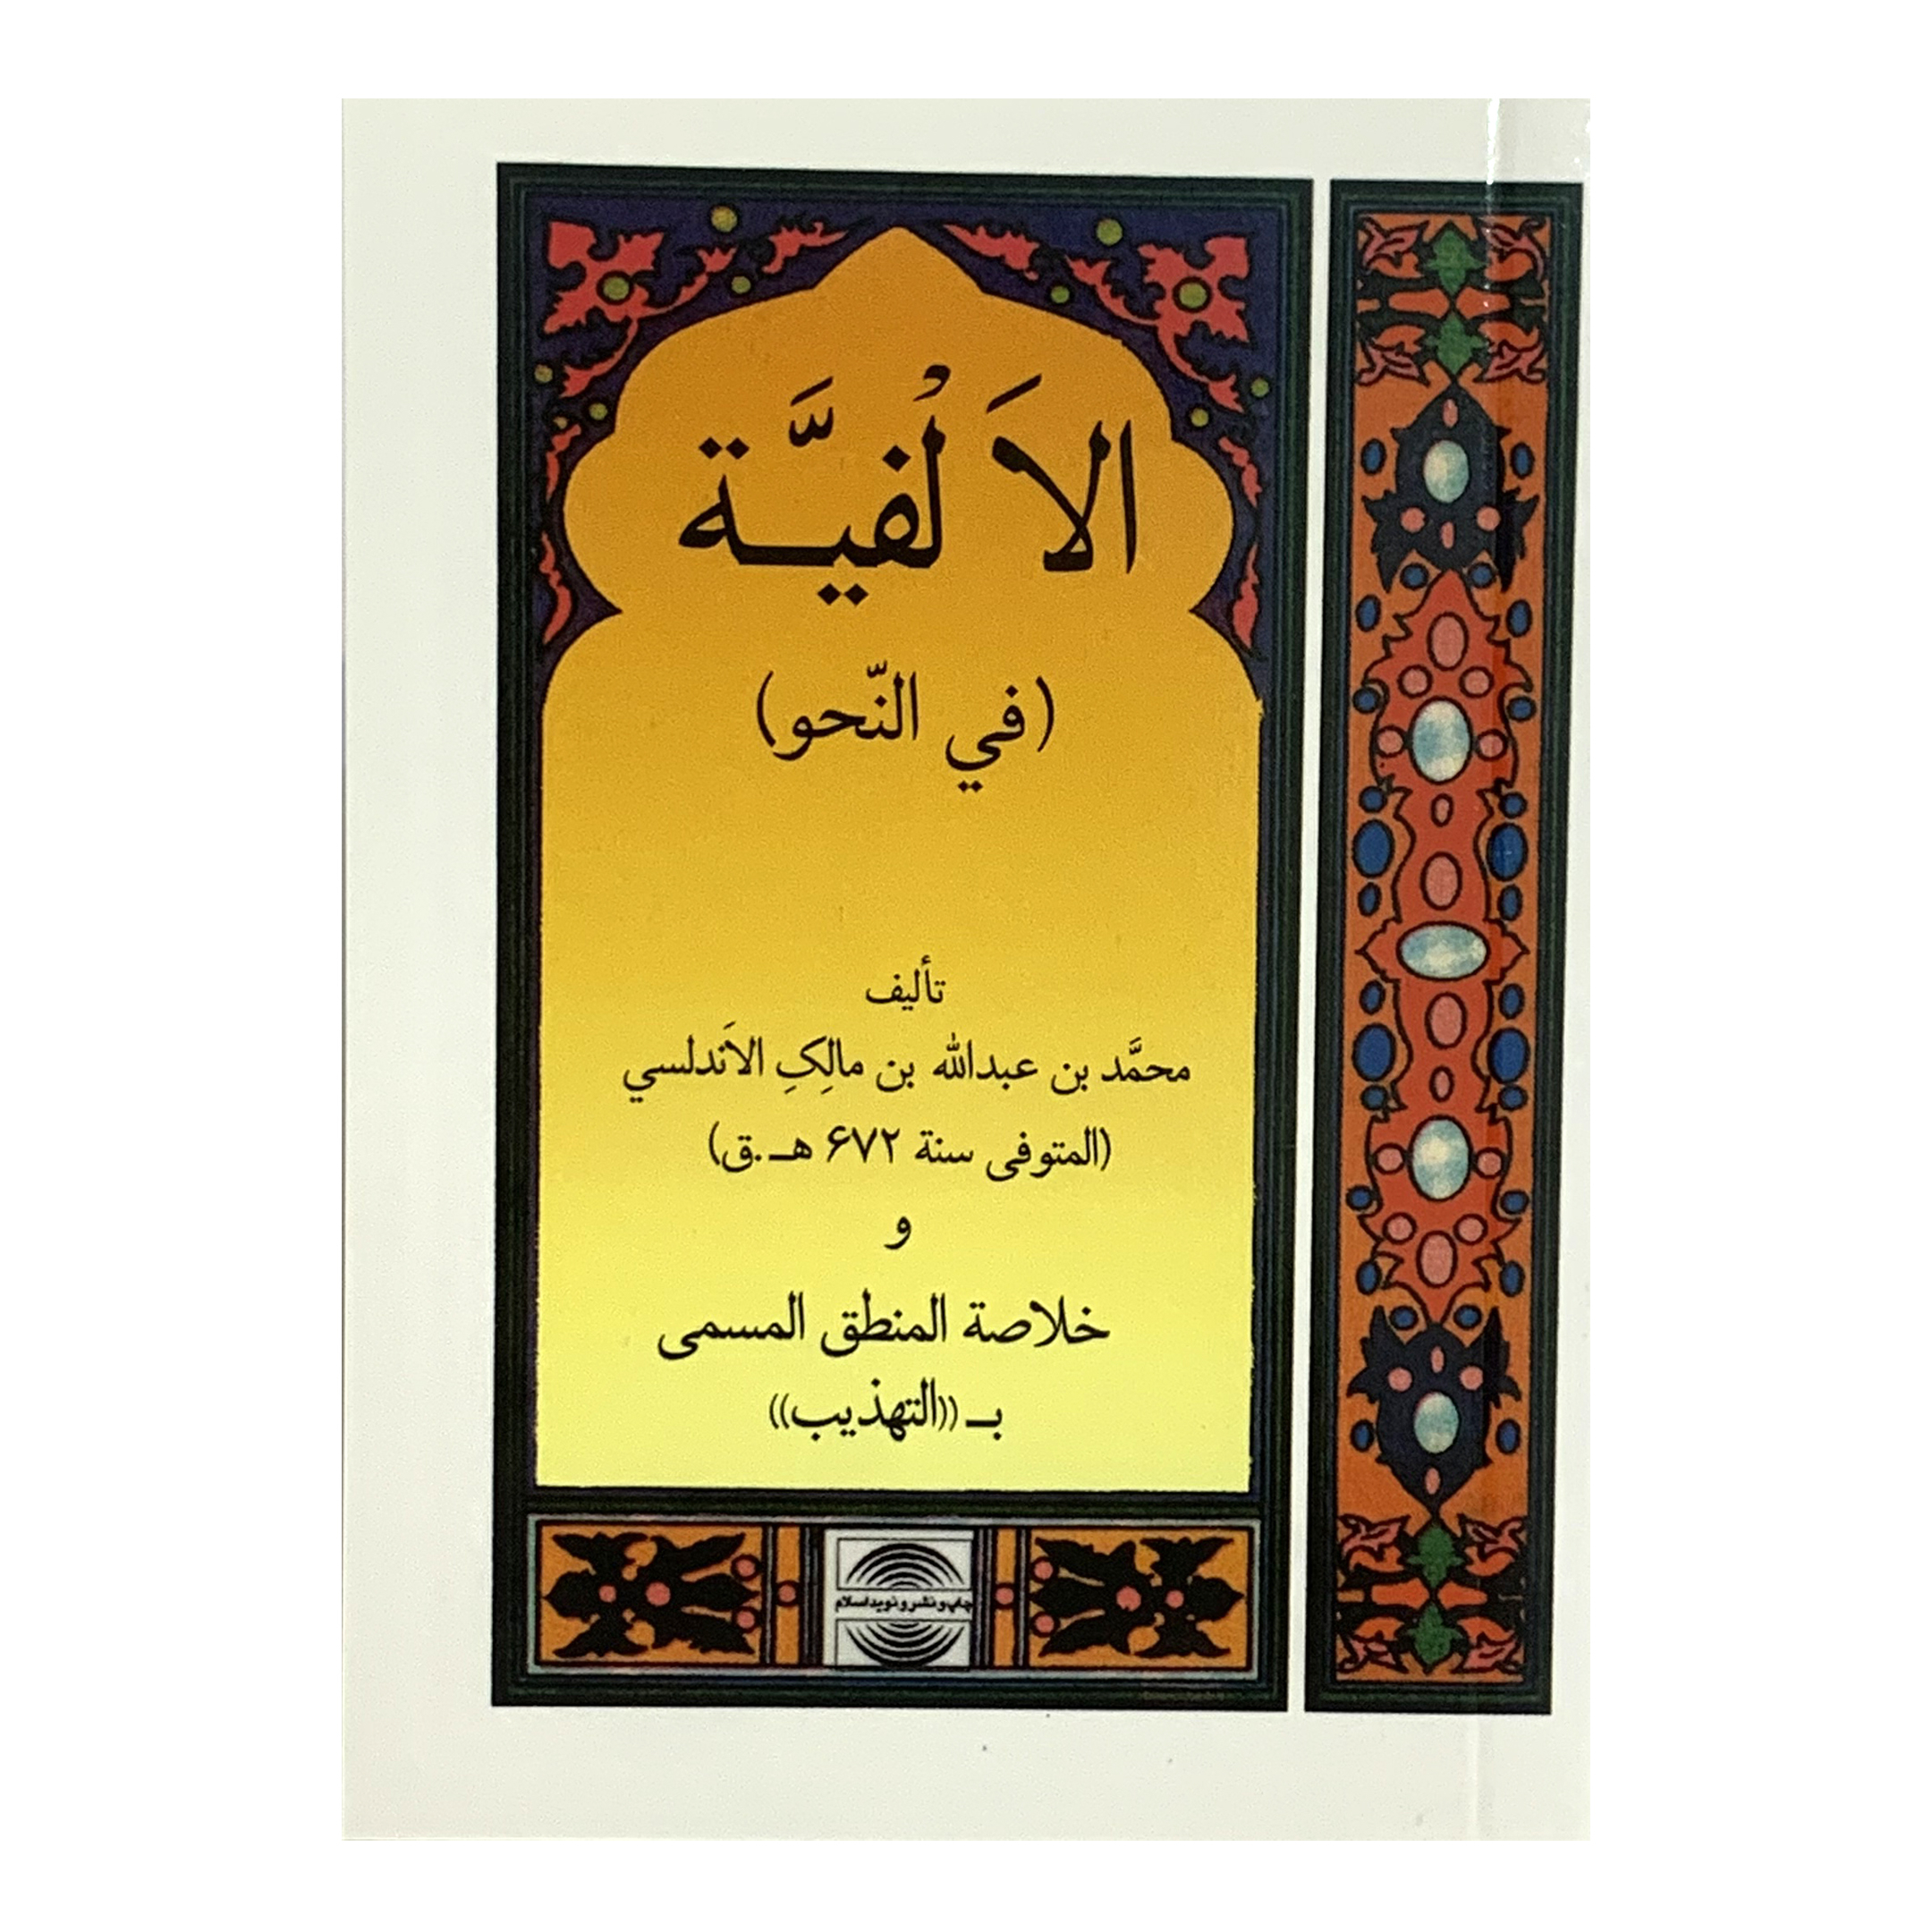 الاَلْفيَّة
(في النّحو)
تأليف
محمَّد بن عبدالله بن مالِکِ الاَندلسي
(المتوفى سنة ۶۷۲ هـ.ق)
و
خلاصة المنطق المسمى
بـ ((التهذيب))
چاپ و نشر و نوید اسلام